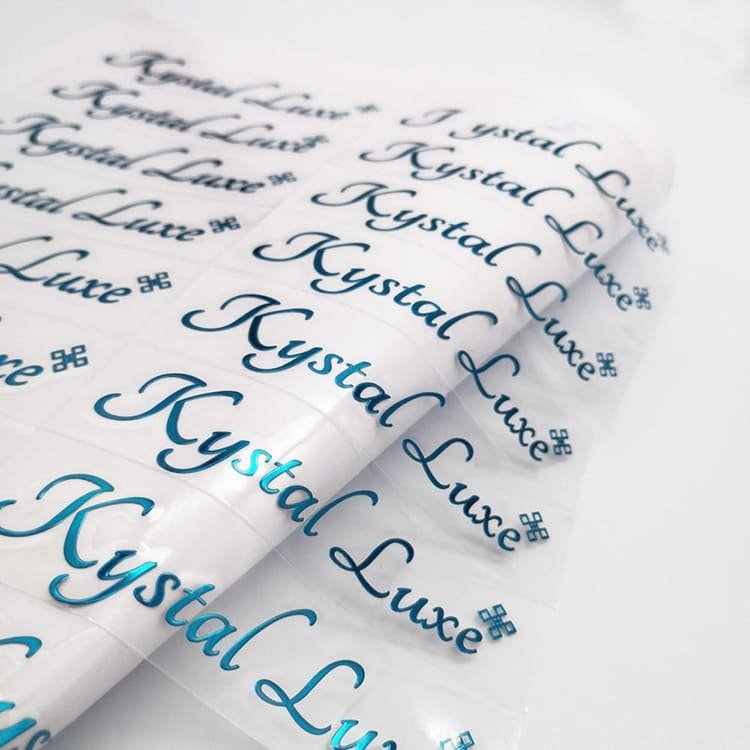 Kystal Luxe
Kystal Luxe
Kystal Luxe
stal Luxe
Luxe
xe
ystal Luxe
Kystal Luxe
Kystal Luxe
Kystal Luxe
Kystal Luxe
Kystal Luxe
Kystal Lux